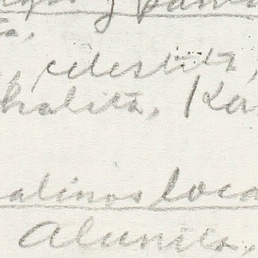 celestita,
halita, Ke
alinos loca
Alunita,